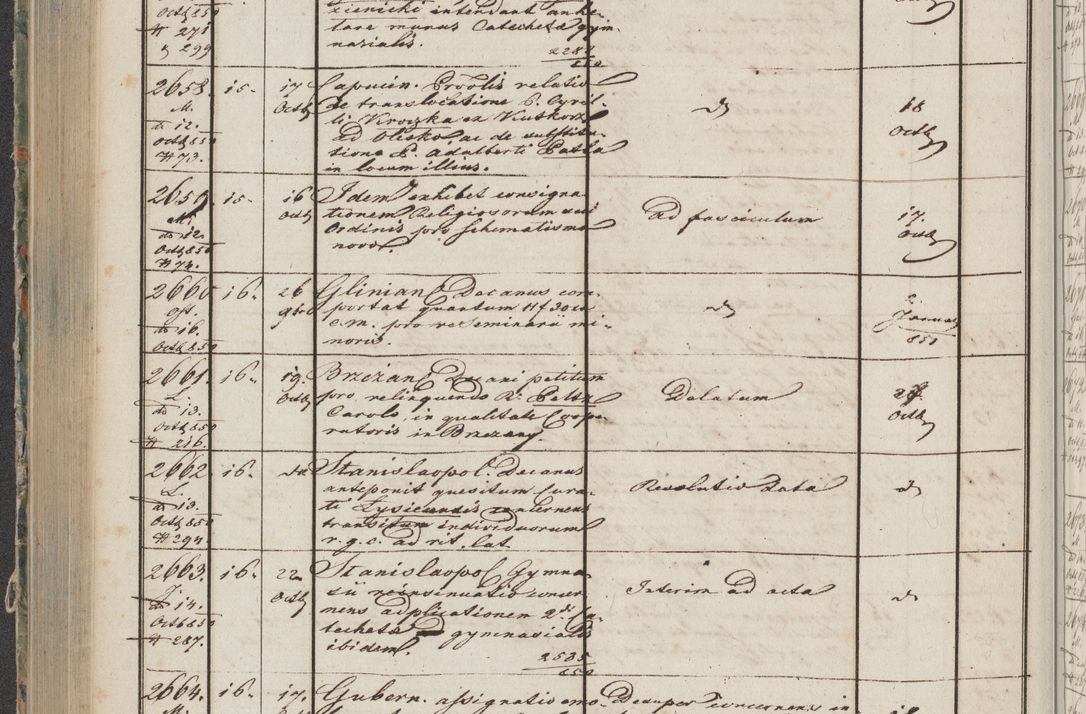 Octb 850
# 271
299
zienicki intendant anhe-
tare munus Catechetae gym-
nasialis.
2284
850
2658. 15. 17
M.
do 12.
Octb 850
# 73.
Octb
Capucin. Provlis relatio
de translocatione P. Cyril-
li Kroczka ex Kutkorz
ad Olesko, ac de substitu-
tione P. Adalberti Patla
in locum illius.
18
Octb
2659. 15. 16
do 12.
Octb 850
# 74.
Octb
Idem exhibet consigna-
tionem Religiosorum sui
Ordinis pro schematismo
novo.
ad fasciculum
17.
Octb
2660 16. 26
do 16.
Octb 850
9bris
Glinian. Decanus com-
portat quantum 11 f 30 xr
c.m. pro re Seminarii mi-
noris.
2
Januar
851
2661. 16. 19.
do 13.
Octb 850
# 216.
Octb
Brzeżan. Decani petitum
pro relinquendo R. Pelz
Carolo in qualitate Coope-
ratoris in Brzezany.
Delatum
Octb
2662 16. do
L.
do 13.
Octb 850
# 294.
Stanislaopol. Decanus
anteponit quesitum Cura-
ti Lysiecensis concernens
transitum individuorum
r. g. c. ad rit. lat.
Resolutio data
do
2663. 16. 22
J.
do 14.
Octb 850
# 287.
Octb
Stanislaopol. Gymna-
sii reinsinuatio concer-
nens adplicationem 2di Ca-
techetae gymnasialis
ibidem.
2535
850
Interim ad acta
do
2664. 16. 17.
M.
Gubern. assignatio emo-
Deauper concernens in
18